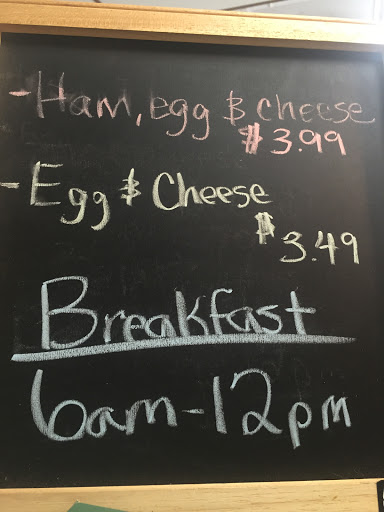 - Ham, egg & cheese
$3.99
- Egg & Cheese
$3.49
Breakfast
6am-12pm